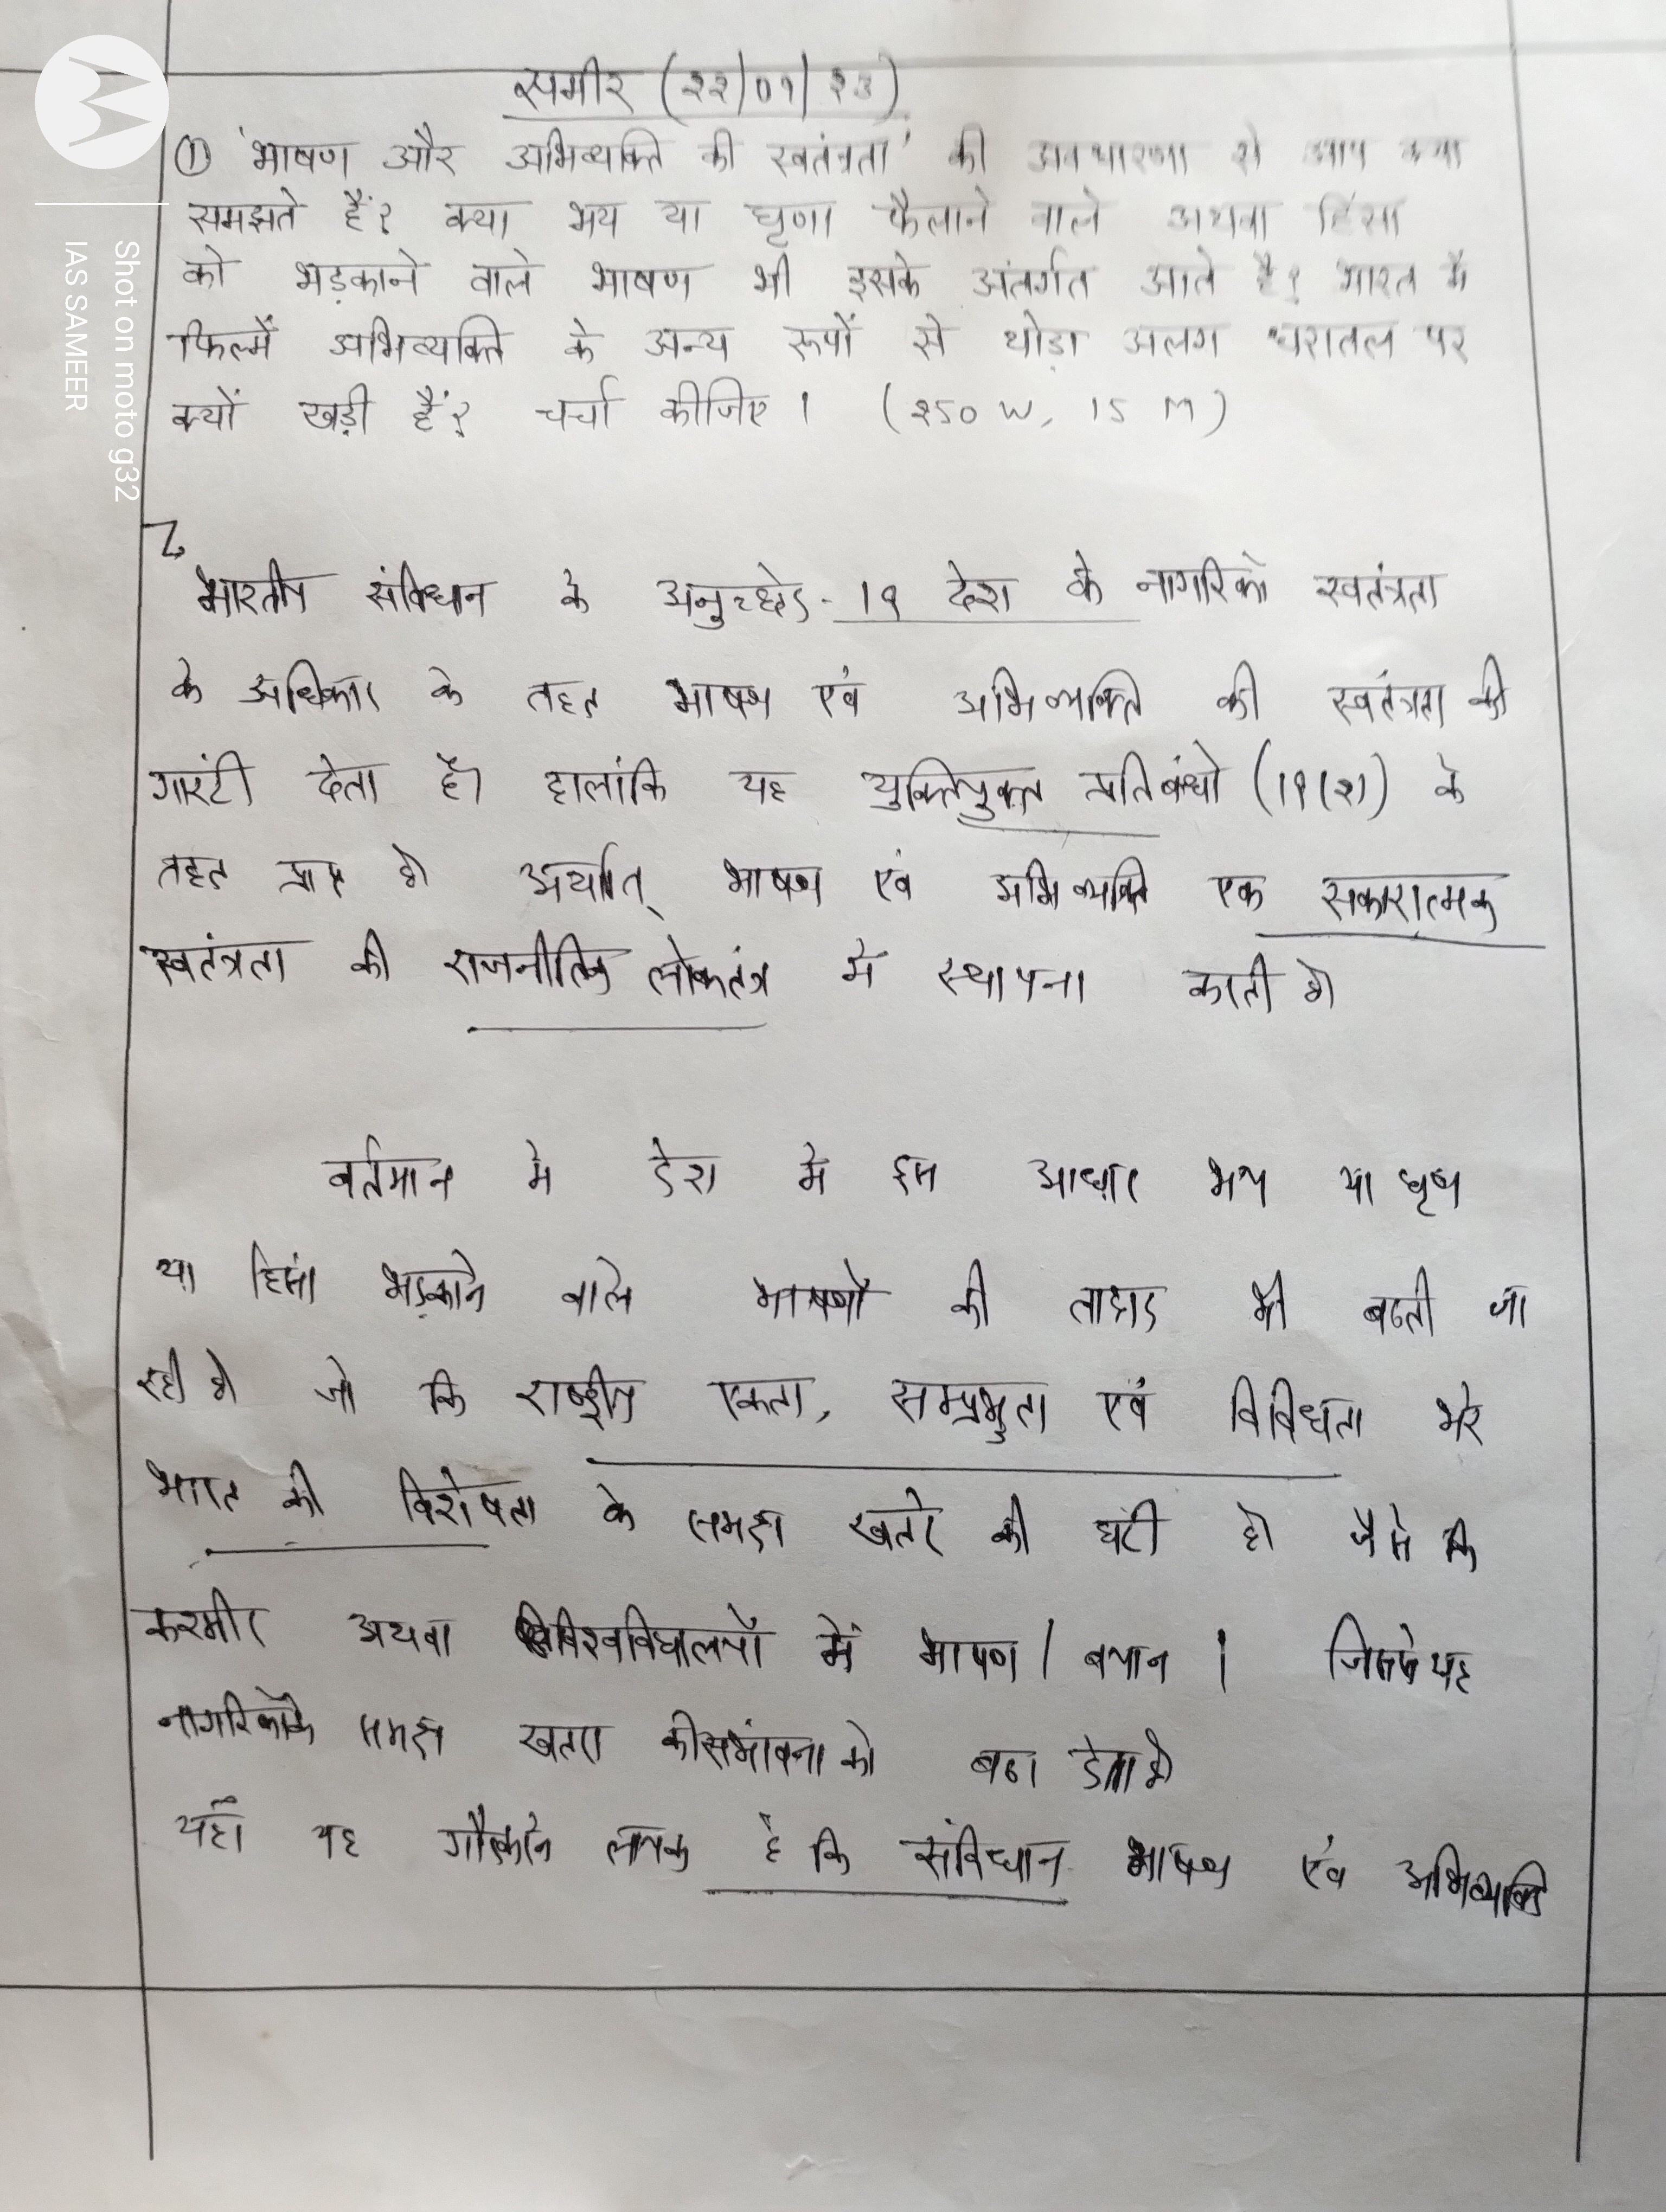 समीर (२२/०१/२३)
① 'भाषण और अभिव्यक्ति की स्वतंत्रता' की अवधारणा से आप क्या
समझते हैं? क्या भय या घृणा फैलाने वाले अथवा हिंसा
को भड़काने वाले भाषण भी इसके अंतर्गत आते है? भारत में
फिल्में अभिव्यक्ति के अन्य रूपों से थोड़ा अलग धरातल पर
क्यों खड़ी हैं? चर्चा कीजिए । (२५० W, 15 M)
भारतीय संविधान के अनुच्छेद-19 देश के नागरिकों स्वतंत्रता
के अधिकार के तहत भाषण एवं अभिव्यक्ति की स्वतंत्रता की
गारंटी देता है। हालांकि यह युक्तियुक्त प्रतिबंधो (19(२)) के
तहत प्राप्त है। अर्थात् भाषण एवं अभिव्यक्ति एक सकारात्मक
स्वतंत्रता की राजनीतिक लोकतंत्र में स्थापना करती है।
वर्तमान मे देश मे इस आधार भय या घृणा
या हिंसा भड़काने वाले भाषणों की तादाद भी बढती जा
रही है। जो कि राष्ट्रीय एकता, सम्प्रभुता एवं विविधता भरे
भारत की विशेषता के समक्ष खतरे की घंटी है। जैसे कि
कश्मीर अथवा विश्वविद्यालयों में भाषण / बयान । जिससे यह
नागरिकोंके समक्ष खतरा कीसंभावना को बढा देता है।
यहाँ यह गौरकरने लायक है कि संविधान भाषण एवं अभिव्यक्ति
Shot on moto g32
IAS SAMEER